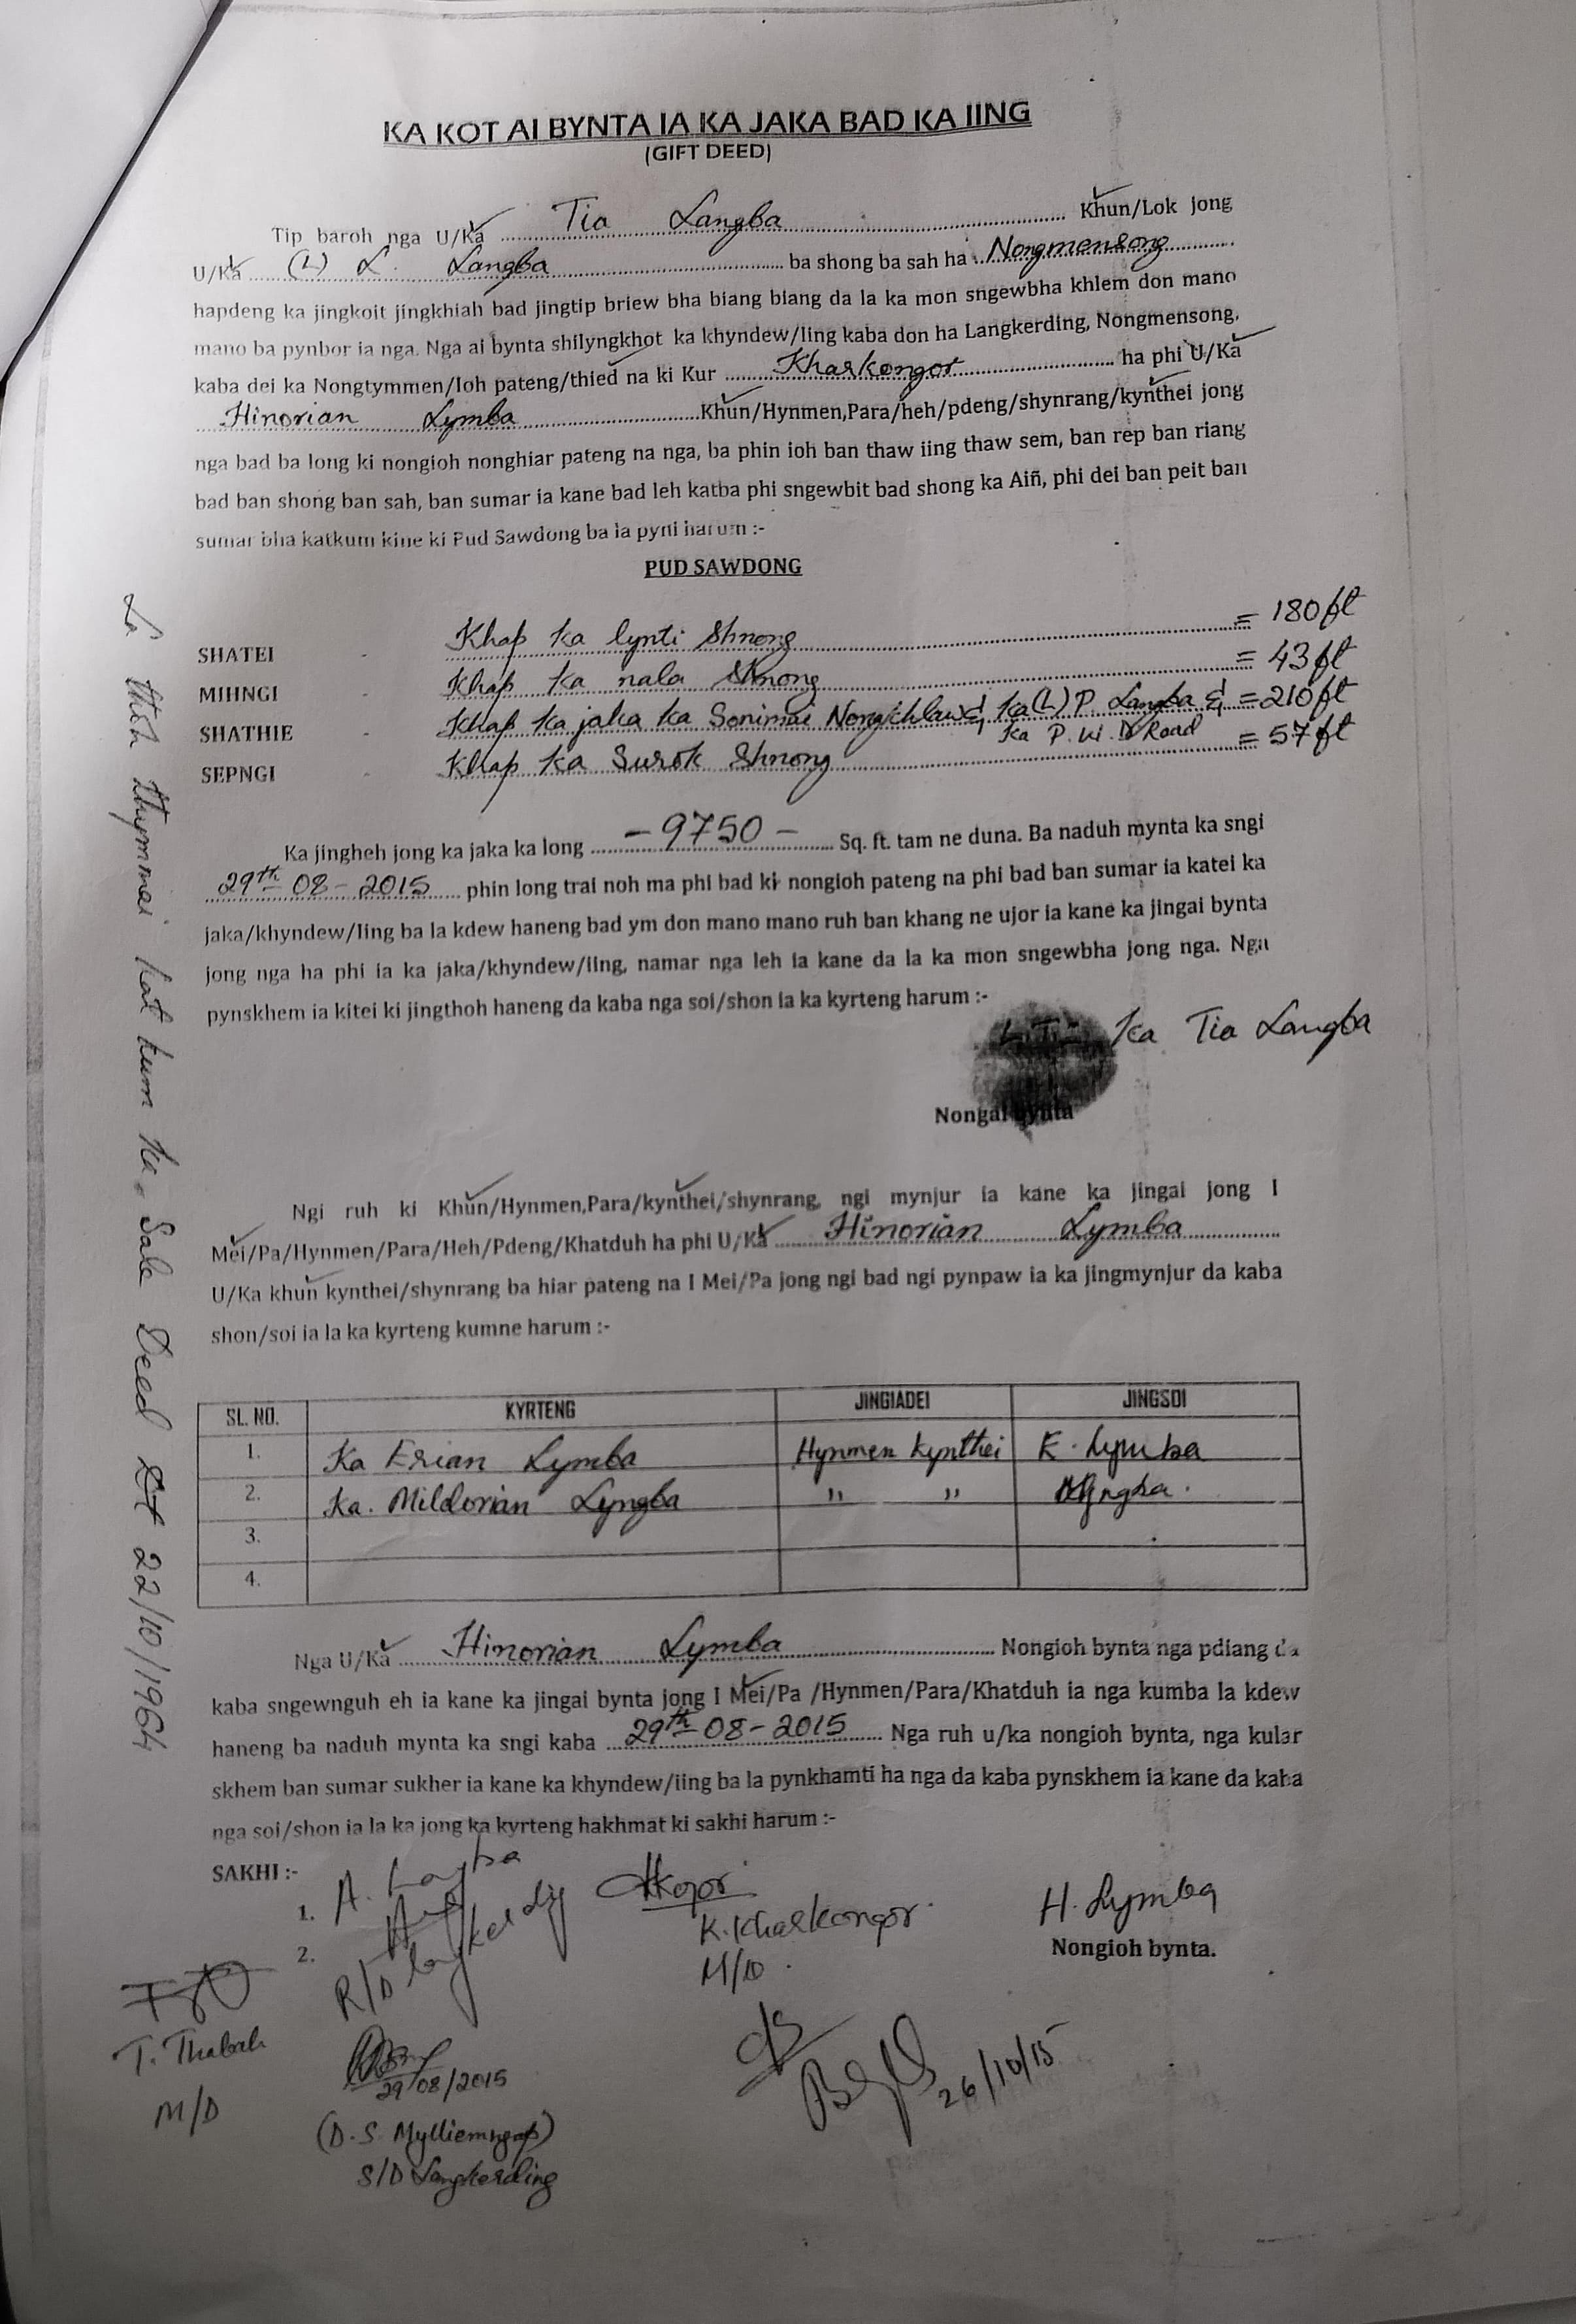 KA KOT AI BYNTA IA KA JAKA BAD KA IING
(GIFT DEED)
Tip baroh nga U/Ka Tia Langba Khun/Lok jong
U/Ka (L) L. Langba ba shong ba sah ha Nongmensong
hapdeng ka jingkoit jingkhiah bad jingtip briew bha biang biang da la ka mon sngewbha khlem don mano
mano ba pynbor ia nga. Nga ai bynta shilyngkhot ka khyndew/Iing kaba don ha Langkerding, Nongmensong,
kaba dei ka Nongtymmen/Ioh pateng/thied na ki Kur Kharkongor ha phi U/Ka
Hinorian Lymba Khun/Hynmen,Para/heh/pdeng/shynrang/kynthei jong
nga bad ba long ki nongioh nonghiar pateng na nga, ba phin ioh ban thaw iing thaw sem, ban rep ban riang
bad ban shong ban sah, ban sumar ia kane bad leh katba phi sngewbit bad shong ka Aiñ, phi dei ban peit ban
sumar bha katkum kine ki Pud Sawdong ba la pyni harum :-
PUD SAWDONG
SHATEI - Khap ka lynti Shnong = 180ft
MIHNGI - Khap ka nala Shnong = 43ft
SHATHIE - Khap ka jaka ka Sonimai Nongkhlaw & ka (L) P. Langba & = 210ft
Ka P.W.D Road
SEPNGI - Khap ka Surok Shnong = 57ft
Ka jingheh jong ka jaka ka long - 9750 - Sq. ft. tam ne duna. Ba naduh mynta ka sngi
29th-08-2015 phin long trai noh ma phi bad ki nongioh pateng na phi bad ban sumar ia katei ka
jaka/khyndew/Iing ba la kdew haneng bad ym don mano mano ruh ban khang ne ujor ia kane ka jingai bynta
jong nga ha phi ia ka jaka/khyndew/iing, namar nga leh ia kane da la ka mon sngewbha jong nga. Nga
pynskhem ia kitei ki jingthoh haneng da kaba nga soi/shon ia ka kyrteng harum :-
Ka Tia Langba
Nongai bynta
Ngi ruh ki Khun/Hynmen,Para/kynthei/shynrang, ngi mynjur ia kane ka jingai jong I
Mei/Pa/Hynmen/Para/Heh/Pdeng/Khatduh ha phi U/Ka Hinorian Lymba
U/Ka khun kynthei/shynrang ba hiar pateng na I Mei/Pa jong ngi bad ngi pynpaw ia ka jingmynjur da kaba
shon/soi ia la ka kyrteng kumne harum :-
SL. NO. KYRTENG JINGIADEI JINGSOI
1. Ka Erian Lymba Hynmen kynthei E. Lymba
2. Ka. Mildorian Lyngba " "
3.
4.
Nga U/Ka Hinorian Lymba Nongioh bynta nga pdiang da
kaba sngewnguh eh ia kane ka jingai bynta jong I Mei/Pa /Hynmen/Para/Khatduh ia nga kumba la kdew
haneng ba naduh mynta ka sngi kaba 29th-08-2015 Nga ruh u/ka nongioh bynta, nga kular
skhem ban sumar sukher ia kane ka khyndew/iing ba la pynkhamti ha nga da kaba pynskhem ia kane da kaba
nga soi/shon ia la ka jong ka kyrteng hakhmat ki sakhi harum :-
SAKHI :-
1. A. Langba
2.
R/D Langkerding
K. Kharkongor
M/D.
H. Lymba
Nongioh bynta.
T. Thabah
M/D
29/08/2015
(D. S. Mylliemngap)
S/D Langkerding
26/10/15
La thoh thymmai kat kum ka Sale Deed Dt 22/10/1964